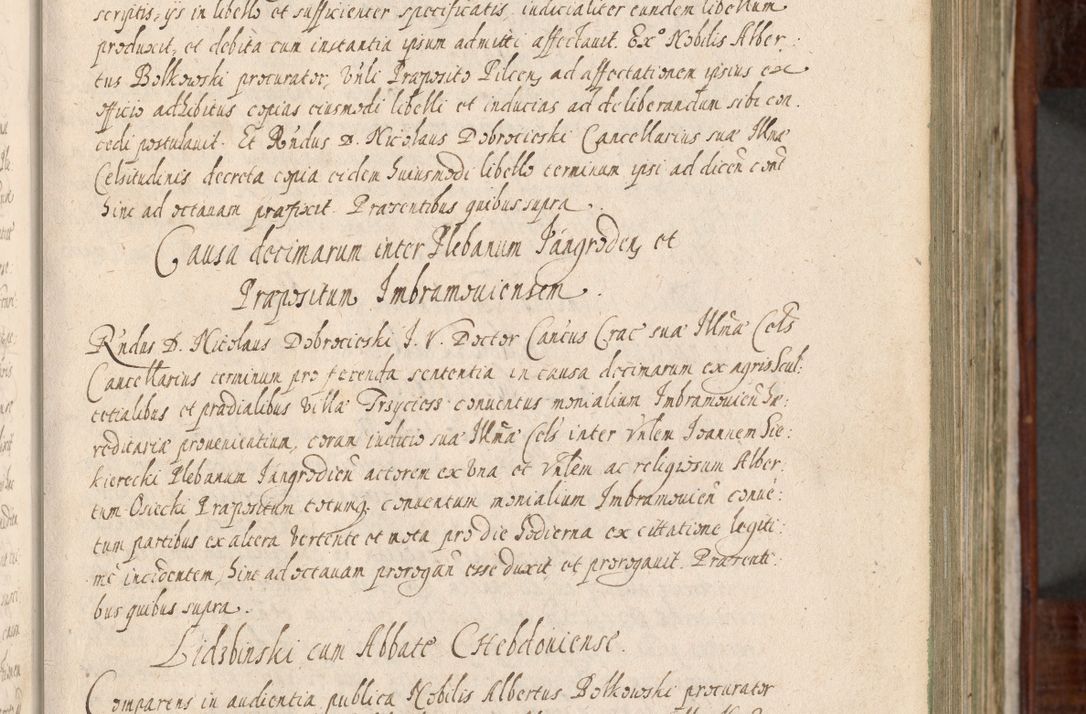 scriptis, ijs in libello et sufficienter specificatis, iudicialiter eundem libellum
produxit, et debita cum instantia ipsum admitti affectauit. Exº Nobilis Alber:
tus Bolkowski procurator, Vnli Praeposito Pilcen, ad affectationem ipsius ex
officio adhibitus copias eiusmodi libelli et inducias ad deliberandum sibi con.
cedi postulauit. Et Rndus D. Nicolaus Dobrocieski Cancellarius suae Illmae
Celsitudinis decreta copia eidem huiusmodi libello terminum ipsi ad dicen cont
hinc ad octauam praefixit. Praesentibus quibus supra.
Causa decimarum inter Plebanum Jángroden, et
Praepositum Imbramouiensem.
Rndus D. Nicolaus Dobrocieski J. V. Doctor Cancus Crac suae Illmae Cels
Cancellarius terminum pro ferenda sententia in causa decimarum ex agris Scul:
tetialibus et praedialibus villae Trsyciess conuentus monialium Imbramouien hae:
reditariae prouenientium, coram iudicio suae Illmae Cels inter Vnlem Joannem Sie:
kierecki Plebanum Jángrodien actorem ex Vna et Vnlem ac religiosum Alber:
tum Osiecki Praepositum totumq conuentum monialium Imbramouien conue:
tum partibus ex altera vertente et mota pro die hodierna ex cittatione legiti:
me incidentem, hinc ad octauam prorogan esse duxit et prorogauit. Praesenti:
bus quibus supra.
Lidsbinski cum Abbate CHebdouiense.
Comparens in audientia publica Nobilis Albertus Bolkowski procurator